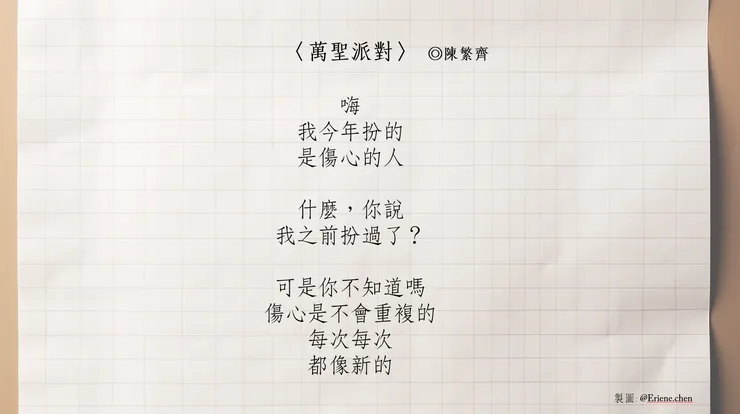 〈萬聖派對〉 ◎陳繁齊
嗨
我今年扮的
是傷心的人
什麼，你說
我之前扮過了？
可是你不知道嗎
傷心是不會重複的
每次每次
都像新的
製圖: @Eriene.chen